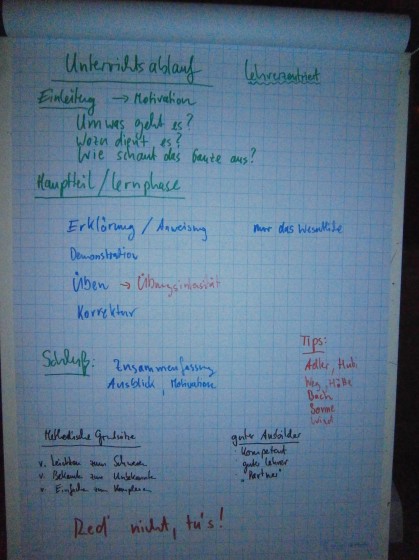 Unterrichtsablauf
Lehrerzentriert
Einleitung → Motivation
Um was geht es?
Wozu dient es?
Wie schaut das Ganze aus?
Hauptteil / Lernphase
Erklärung / Anweisung
nur das Wesentliche
Demonstration
Üben → Übungsintensität
Korrektur
Schluß: Zusammenfassung
Ausblick, Motivation
Tips:
Adler,
Weg, Hütte
Bach
Sonne
Wind
Methodische Grundsätze
v. Leichten zum Schweren
v. Bekannten zum Unbekannten
v. Einfachen zum Komplexen
guter Ausbilder
Kompetent
guter Lehrer
"Partner"
Red' nicht, tu's!